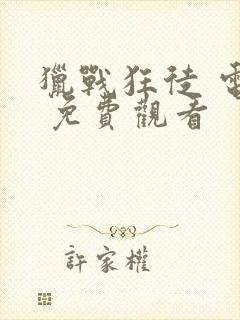 獵戰狂徒 電
免費觀看
許家權